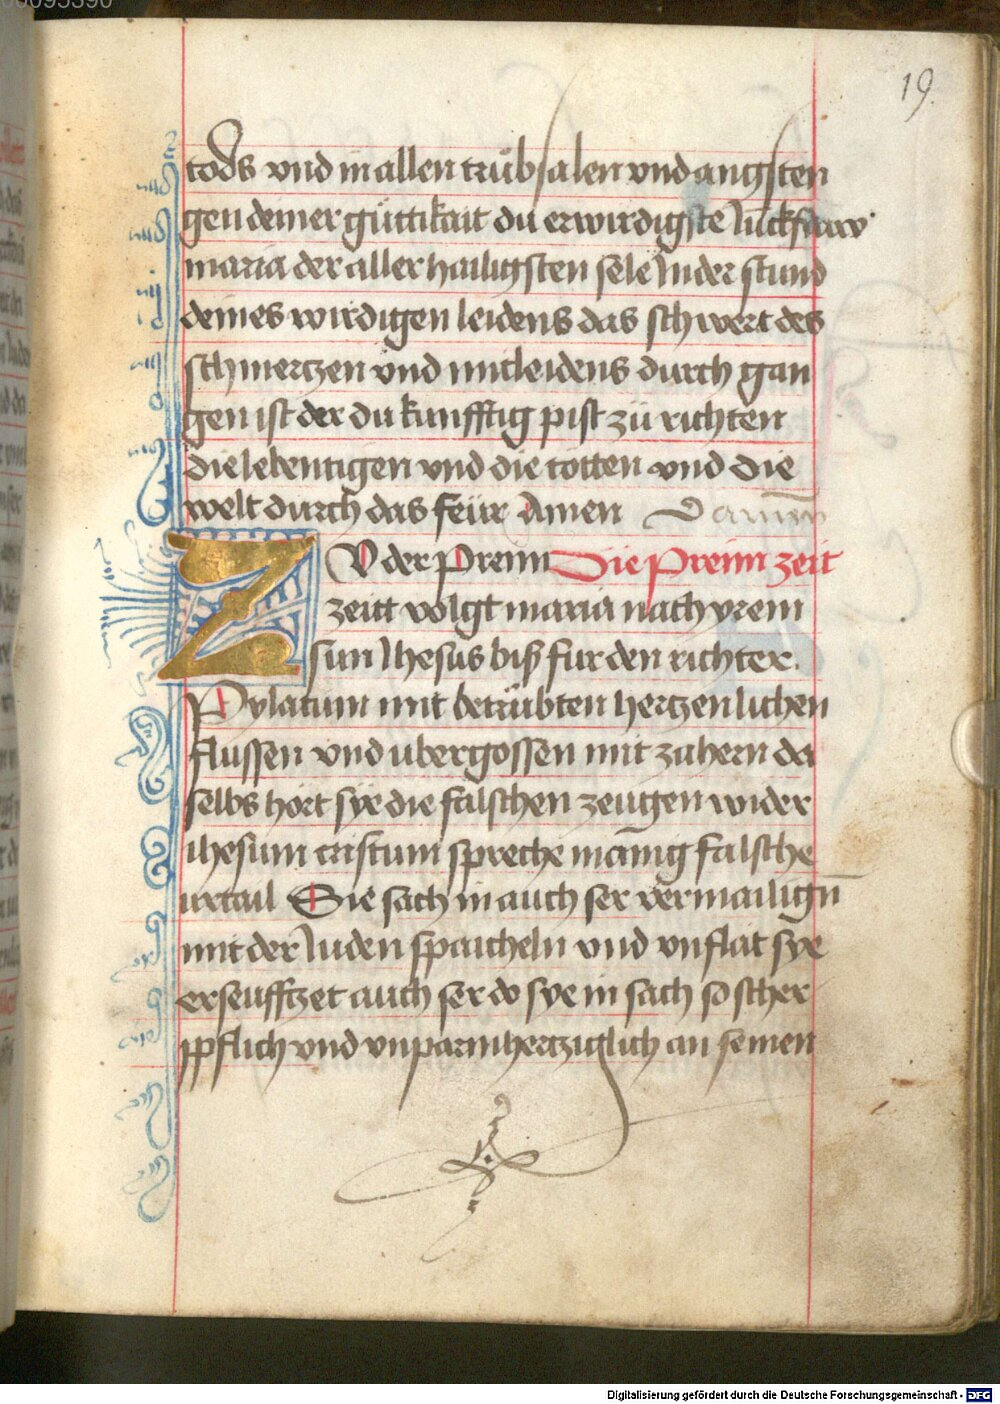 19.
tods vnd in allen trübsalen vnd angsten
gen deiner güttikait du erwirdigste Junckfraw
maria der aller hailigsten sele In der stund
deines wirdigen leidens das schwert des
schmertzen vnd mitleidens durch gan
gen ist der du kunfftig pist zü richten
die lebentigen vnd die totten vnd die
welt durch das feür Amen
ZV der Preim Die Preim zeit
zeitt volgt maria nach yrem
sun Jhesus biß fur den richter.
Pylatum mit betrübten hertzenlichen
flussen vnd vbergossen mit zähern da
selbs hört sye die falschen zeugen wider
ihesum cristum spreche mänig falsche
urtail Sie sach in auch ser vermailign̄
mit der Juden spaicheln vnd vnflat sye
erseufftzet auch ser do sye in sach so scher
pflich vnd vnparmhertziglich an seinen
Digitalisierung gefördert durch die Deutsche Forschungsgemeinschaft - DFG